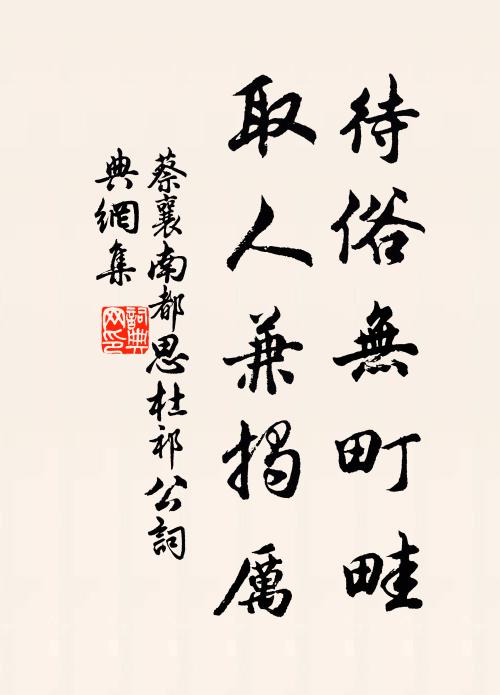 待俗無町畦
取人兼揭厲
蔡襄南都思杜祁公詞
典網集
詞典
网印